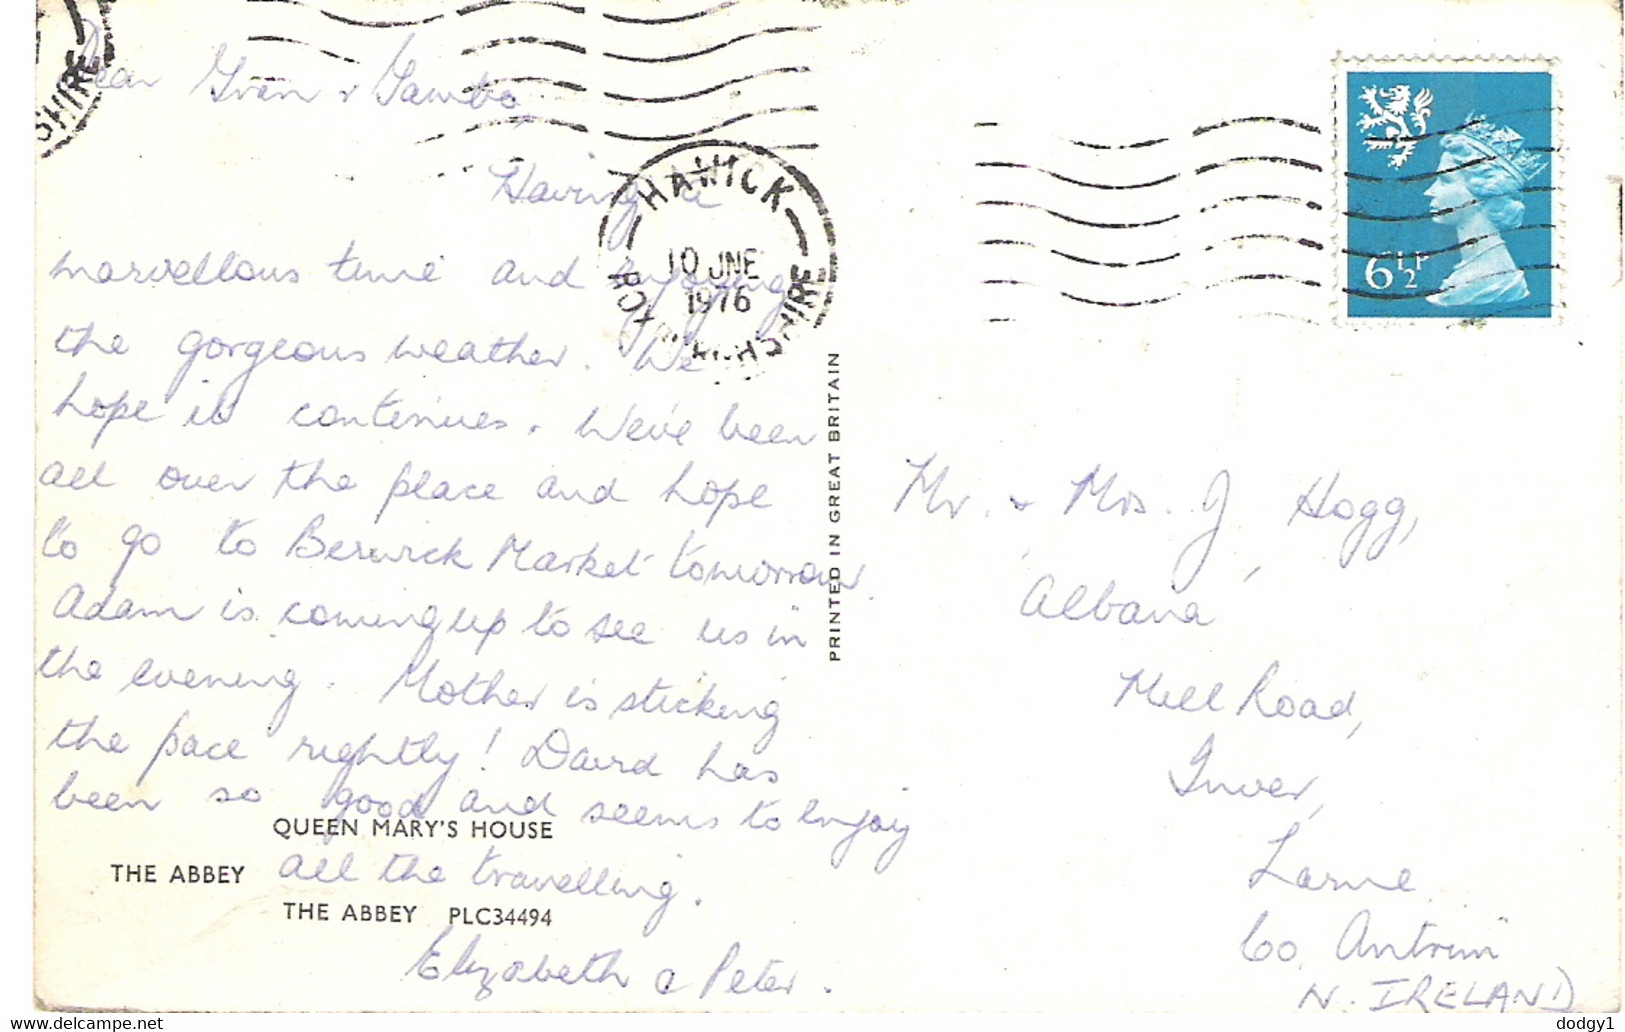 Dear Gran & Gambo,
Having a
marvellous time and enjoying
the gorgeous weather. We
hope it continues. We've been
all over the place and hope
to go to Berwick Market tomorrow.
Adam is coming up to see us in
the evening. Mother is sticking
the pace rightly! David has
been so good and seems to enjoy
all the travelling.
Elizabeth & Peter.
QUEEN MARY'S HOUSE
THE ABBEY
THE ABBEY PLC34494
PRINTED IN GREAT BRITAIN
SHIRE
HAWICK
10 JNE
1976
ROXBURGHSHIRE
6½P
Mr. & Mrs. J. Hogg,
'Albana'
Mill Road,
Inver,
Larne
Co. Antrim
N. IRELAND
dodgy1